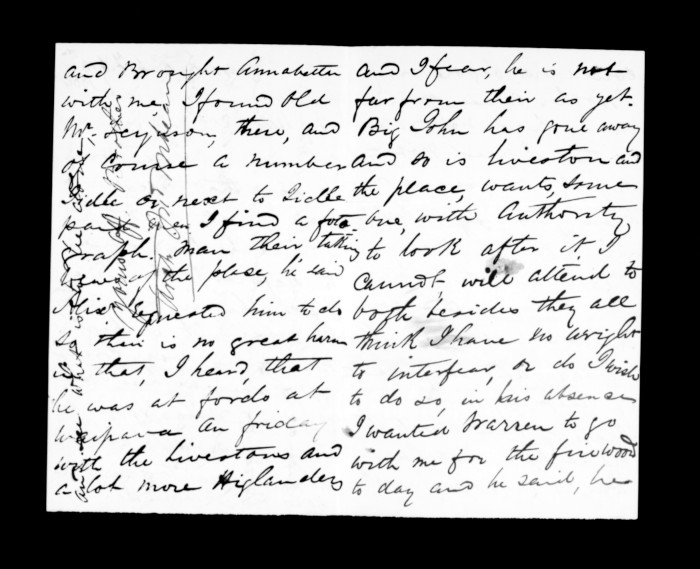 and Brought Annabella
with me I found Old
Mr. Ferguson, there, and
of Course a number
Idle or next to Idle
I find a foto
graph. man their taking
views of the place, he said
Alix Requested him to do
so, their is no great harm
in that, I heard, that
he was at fords at
waipawa on friday
with the Livestons and
a lot more Higlanders
and I fear, he is not
far from their as yet.
Big John has gone away
and so is liveston and
the place, wants, some
one, with Authority
to look after it I
Cannot, will attend to
both besides they all
think I have no wright
to interfear, or do I wish
to do so, in his absense
I wanted Warren to go
with me for the firewood
to day and he said, he